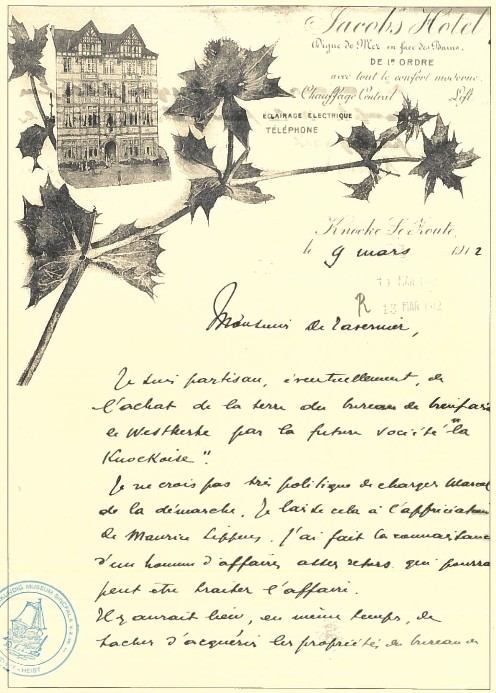 Jacobs Hotel
Digue de Mer en face des Bains.
DE 1e ORDRE
avec tout le confort moderne.
Chauffage Central Lift
ECLAIRAGE ELECTRIQUE
TÉLÉPHONE
Knocke Le Zoute,
le 9 mars 1912
11 MAR
R 13 MAR 1912
Monsieur de Tavernier,
Je suis partisan, éventuellement, de
l'achat de la terre du bureau de bienfais
de Westkerke par la future société "la
Knockoise".
Je ne crois pas très politique de charger Marcel
de la démarche. Je laisse cela à l'appréciation
de Maurice Lippens. J'ai fait la connaissance
d'un homme d'affaires assez retors qui pourra
peut être traiter l'affaire.
Il y aurait lieu, en même temps, de
tacher d'acquérir les propriétés du bureau de
MUSEUM SINCFALA
HEIST